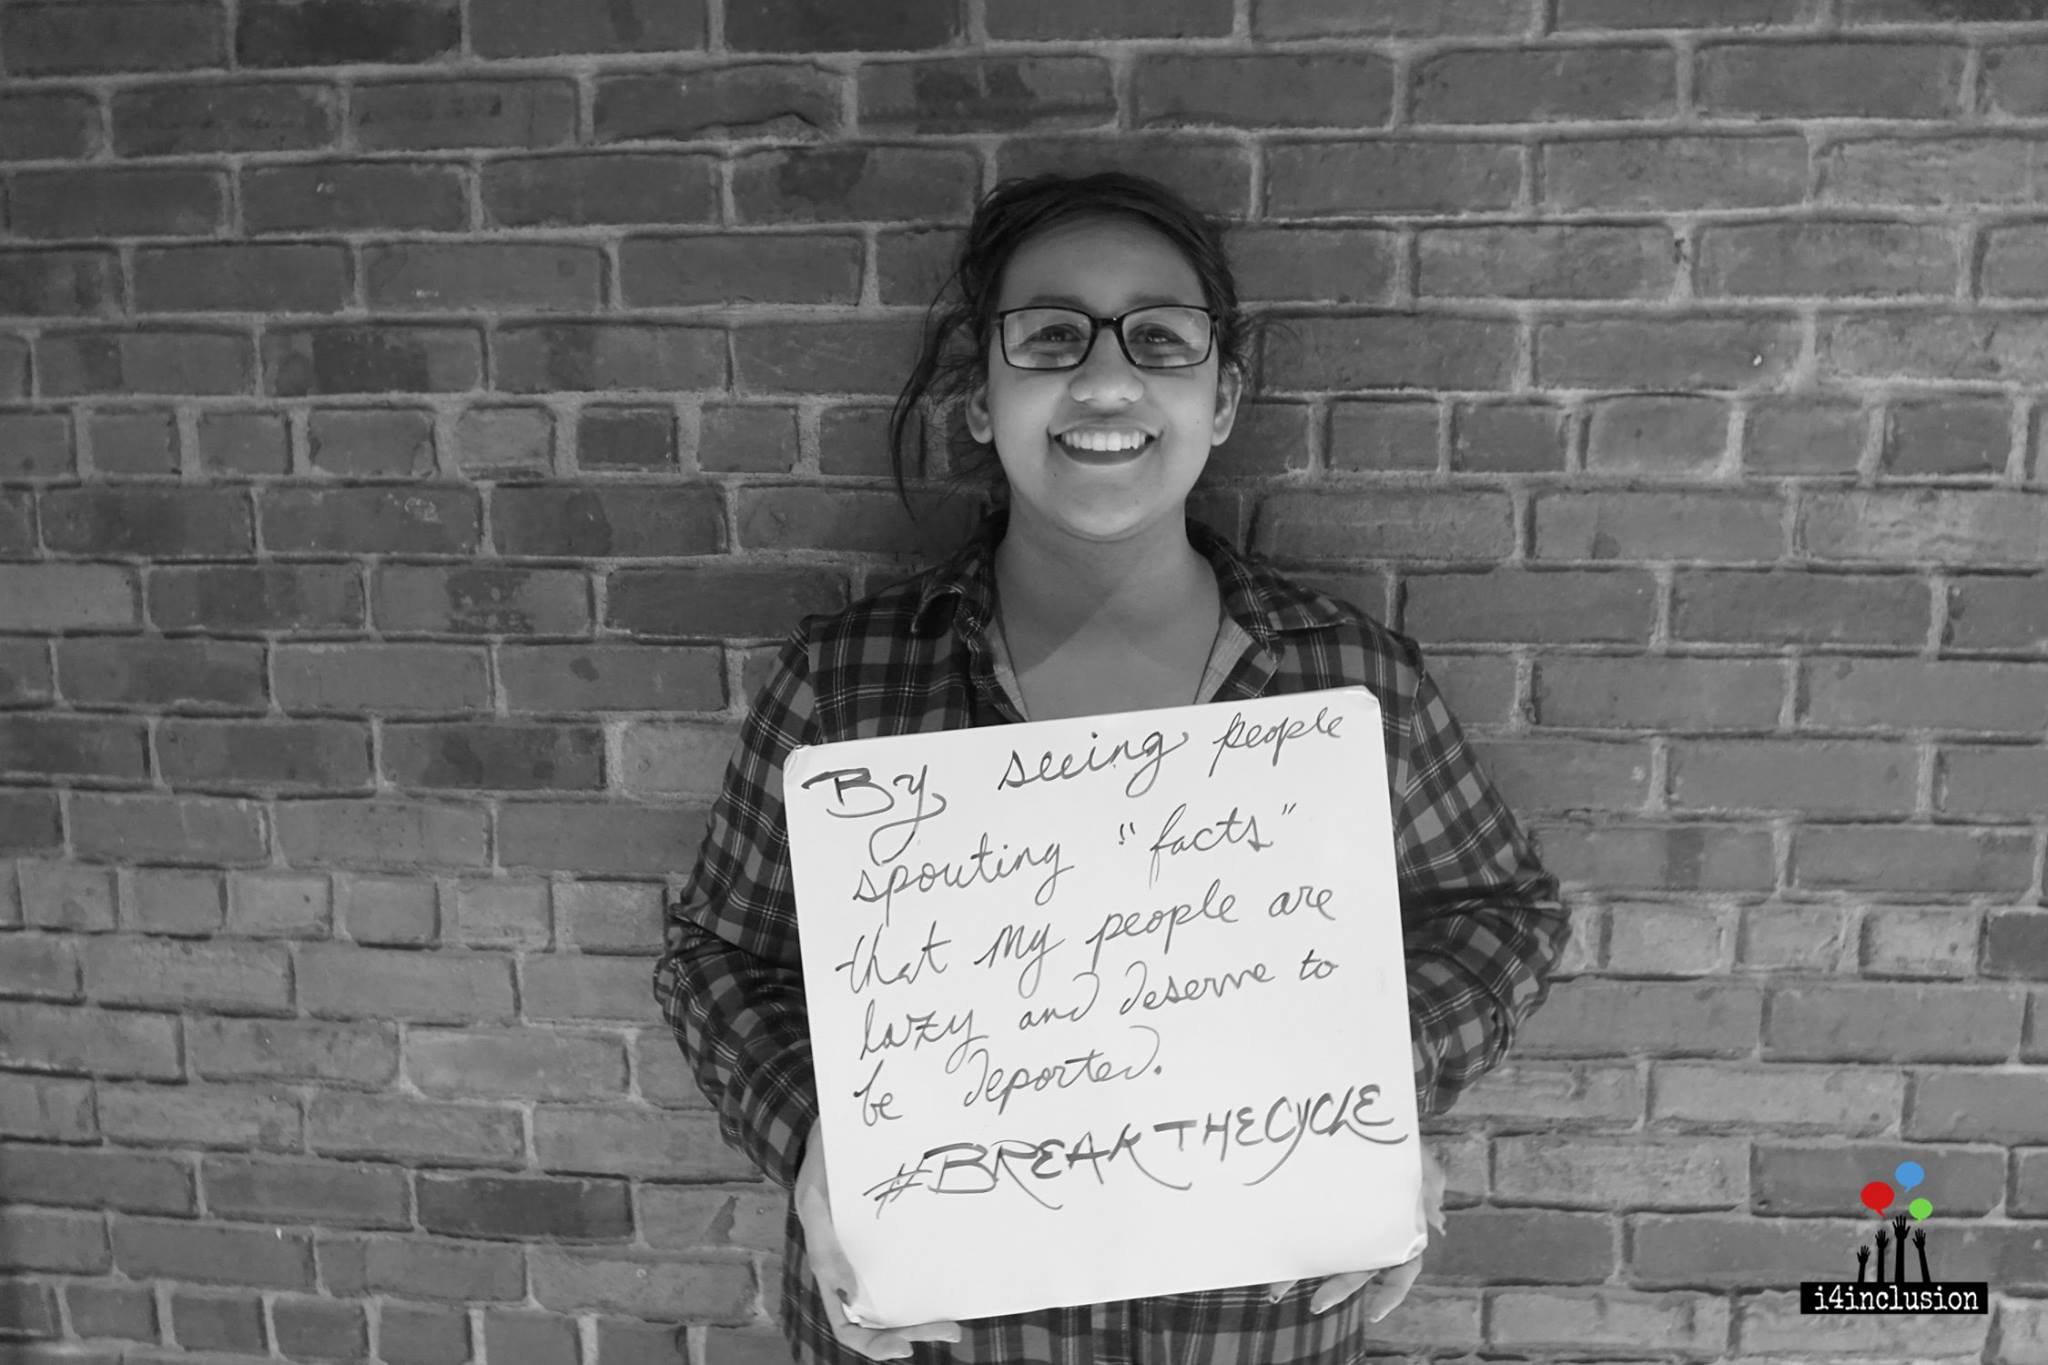 By seeing people
spouting "facts"
that my people are
lazy and deserve to
be deported.
#BREAKTHECYCLE
i4inclusion